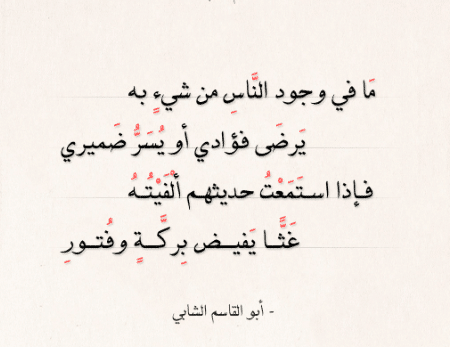 مَا في وجود النَّاسِ من شيءٍ به
يَرضَى فؤادي أو يُسَرُّ ضَميري
فإذا استَمَعْتُ حديثهم ألْفَيْتُهُ
غَثًّا يَفيض بِركَّةٍ وفُتورِ
- أبو القاسم الشابي